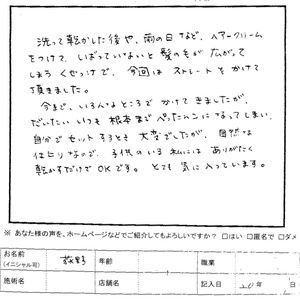 洗って乾かした後や、雨の日など、ヘアークリーム
をつけて、しばっていないと髪の毛が広がって
しまうくせっけで、今回はストレートをかけて
頂きました。
今まで、いろんなところでかけてきましたが、
だいたいいつも根本までぺったんこになってしまい、
自分でセットするとき大変でしたが、自然な
仕上りなので、子供のいる私にはありがたく
乾かすだけでOKです。とても気に入っています。
※ あなた様の声を、ホームページなどでご紹介してもよろしいですか? □はい □匿名で □ダメ
お名前
(イニシャル可)
荻野
年齢
職業
施術名
店舗名
記入日